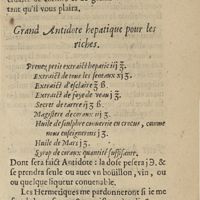 tant qu'il vous plaira.
Grand Antidote hepatique pour les
riches.
Prenez petit extraict hepatic iij ʒ.
Extraict de tous les senteaux xj ʒ.
Extraict d'esclaire ʒ ß.
Extraict de foye de veau j ʒ.
Secret de tartre ij ʒ ß.
Magistere de coraux iij ʒ.
Huile de soulphre convertie en crocus, comme
nous enseignerons j ʒ.
Huile de Mars j ʒ.
Syrop de coraux quantité suffisante.
Dont sera faict Antidote: la dose pesera j ℈. &
se prendra seule ou auec vn boüillon, vin, ou
ou quelque liqueur conuenable.
Les Hermetiques me pardonneront si ie me